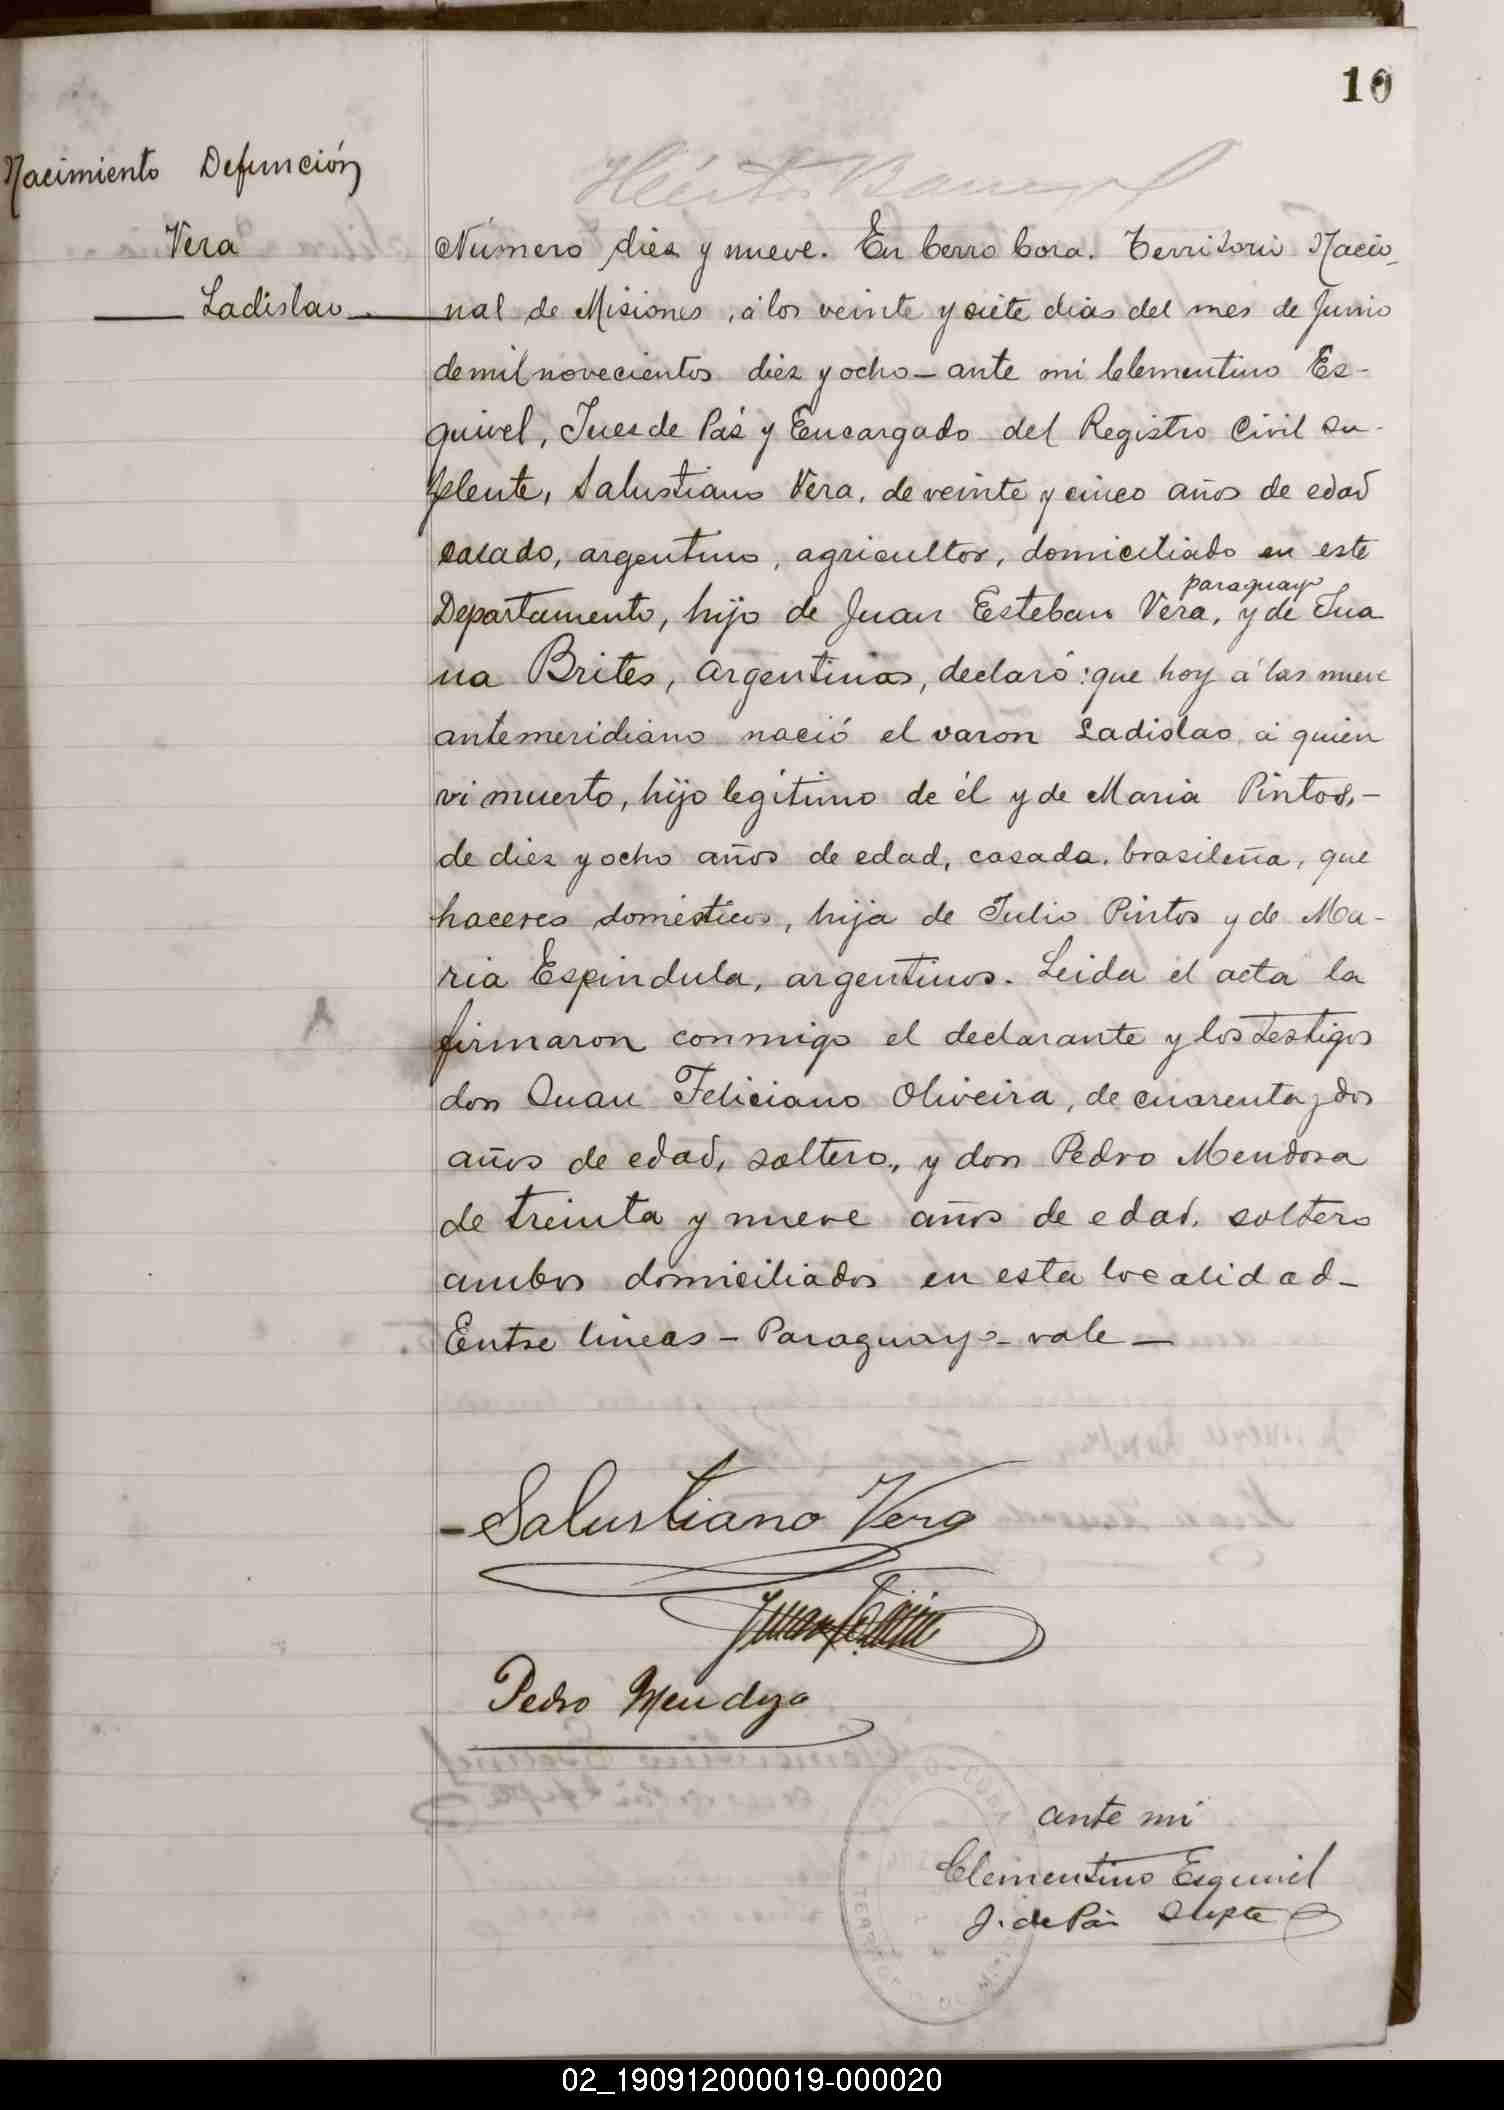 10
Nacimiento Defunción
Vera
Ladislao
Número diez y nueve. En Cerro Cora. Territorio Nacio-
nal de Misiones, á los veinte y siete dias del mes de Junio
de mil novecientos diez y ocho - ante mi Clementino Es-
quivel, Juez de Paz y Encargado del Registro Civil su-
plente, Salustiano Vera, de veinte y cinco años de edad
casado, argentino, agricultor, domiciliado en este
paraguayo
Departamento, hijo de Juan Esteban Vera, y de Jua
na Brites, argentina, declaró: que hoy á las nueve
antemeridiano nació el varon Ladislao, á quien
vi muerto, hijo legítimo de él y de Maria Pintos,-
de diez y ocho años de edad, casada, brasileña, que
haceres domésticos, hija de Julio Pintos y de Ma-
ria Espindula, argentinos. Leida el acta la
firmaron conmigo el declarante y los testigos
don Juan Feliciano Oliveira, de cuarenta y dos
años de edad, soltero, y don Pedro Mendoza
de treinta y nueve años de edad, soltero
ambos domiciliados en esta localidad-
Entre lineas - Paraguayo - vale -
Salustiano Vera
Juan
Pedro Mendoza
ante mi
Clementino Esquivel
J. de Paz Suplte
02_190912000019-000020